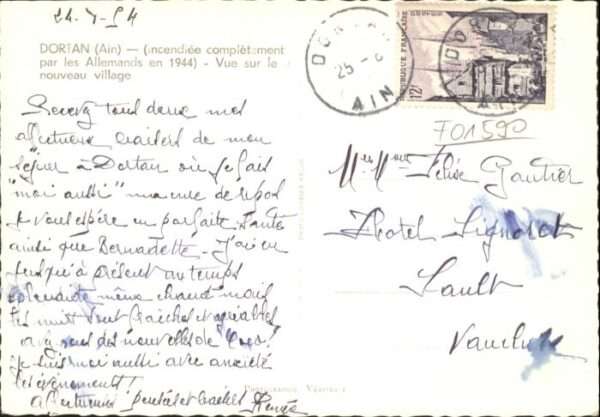 24-7-54
DORTAN (Ain) — (incendiée complètement
par les Allemands en 1944) - Vue sur le
nouveau village
Recevez tous deux mes
affectueux baisers de mon
séjour à Dortan où je fais
"moi aussi" une cure de repos
Je vous espère en parfaite santé
ainsi que Bernadette. J'ai eu
jusqu'à présent du temps
même chaud mais
les nuits sont fraîches et agréables
avez vous des nouvelles de
Je suis moi aussi avec anxiété
les événements!
affectueuses pensées et baisers Renée
DORTAN
25 -
AIN
RÉPUBLIQUE FRANÇAISE
POSTES
12F
DOR
AIN
F01590
Félix Gautier
Hotel Signoret
Sault
Vaucluse